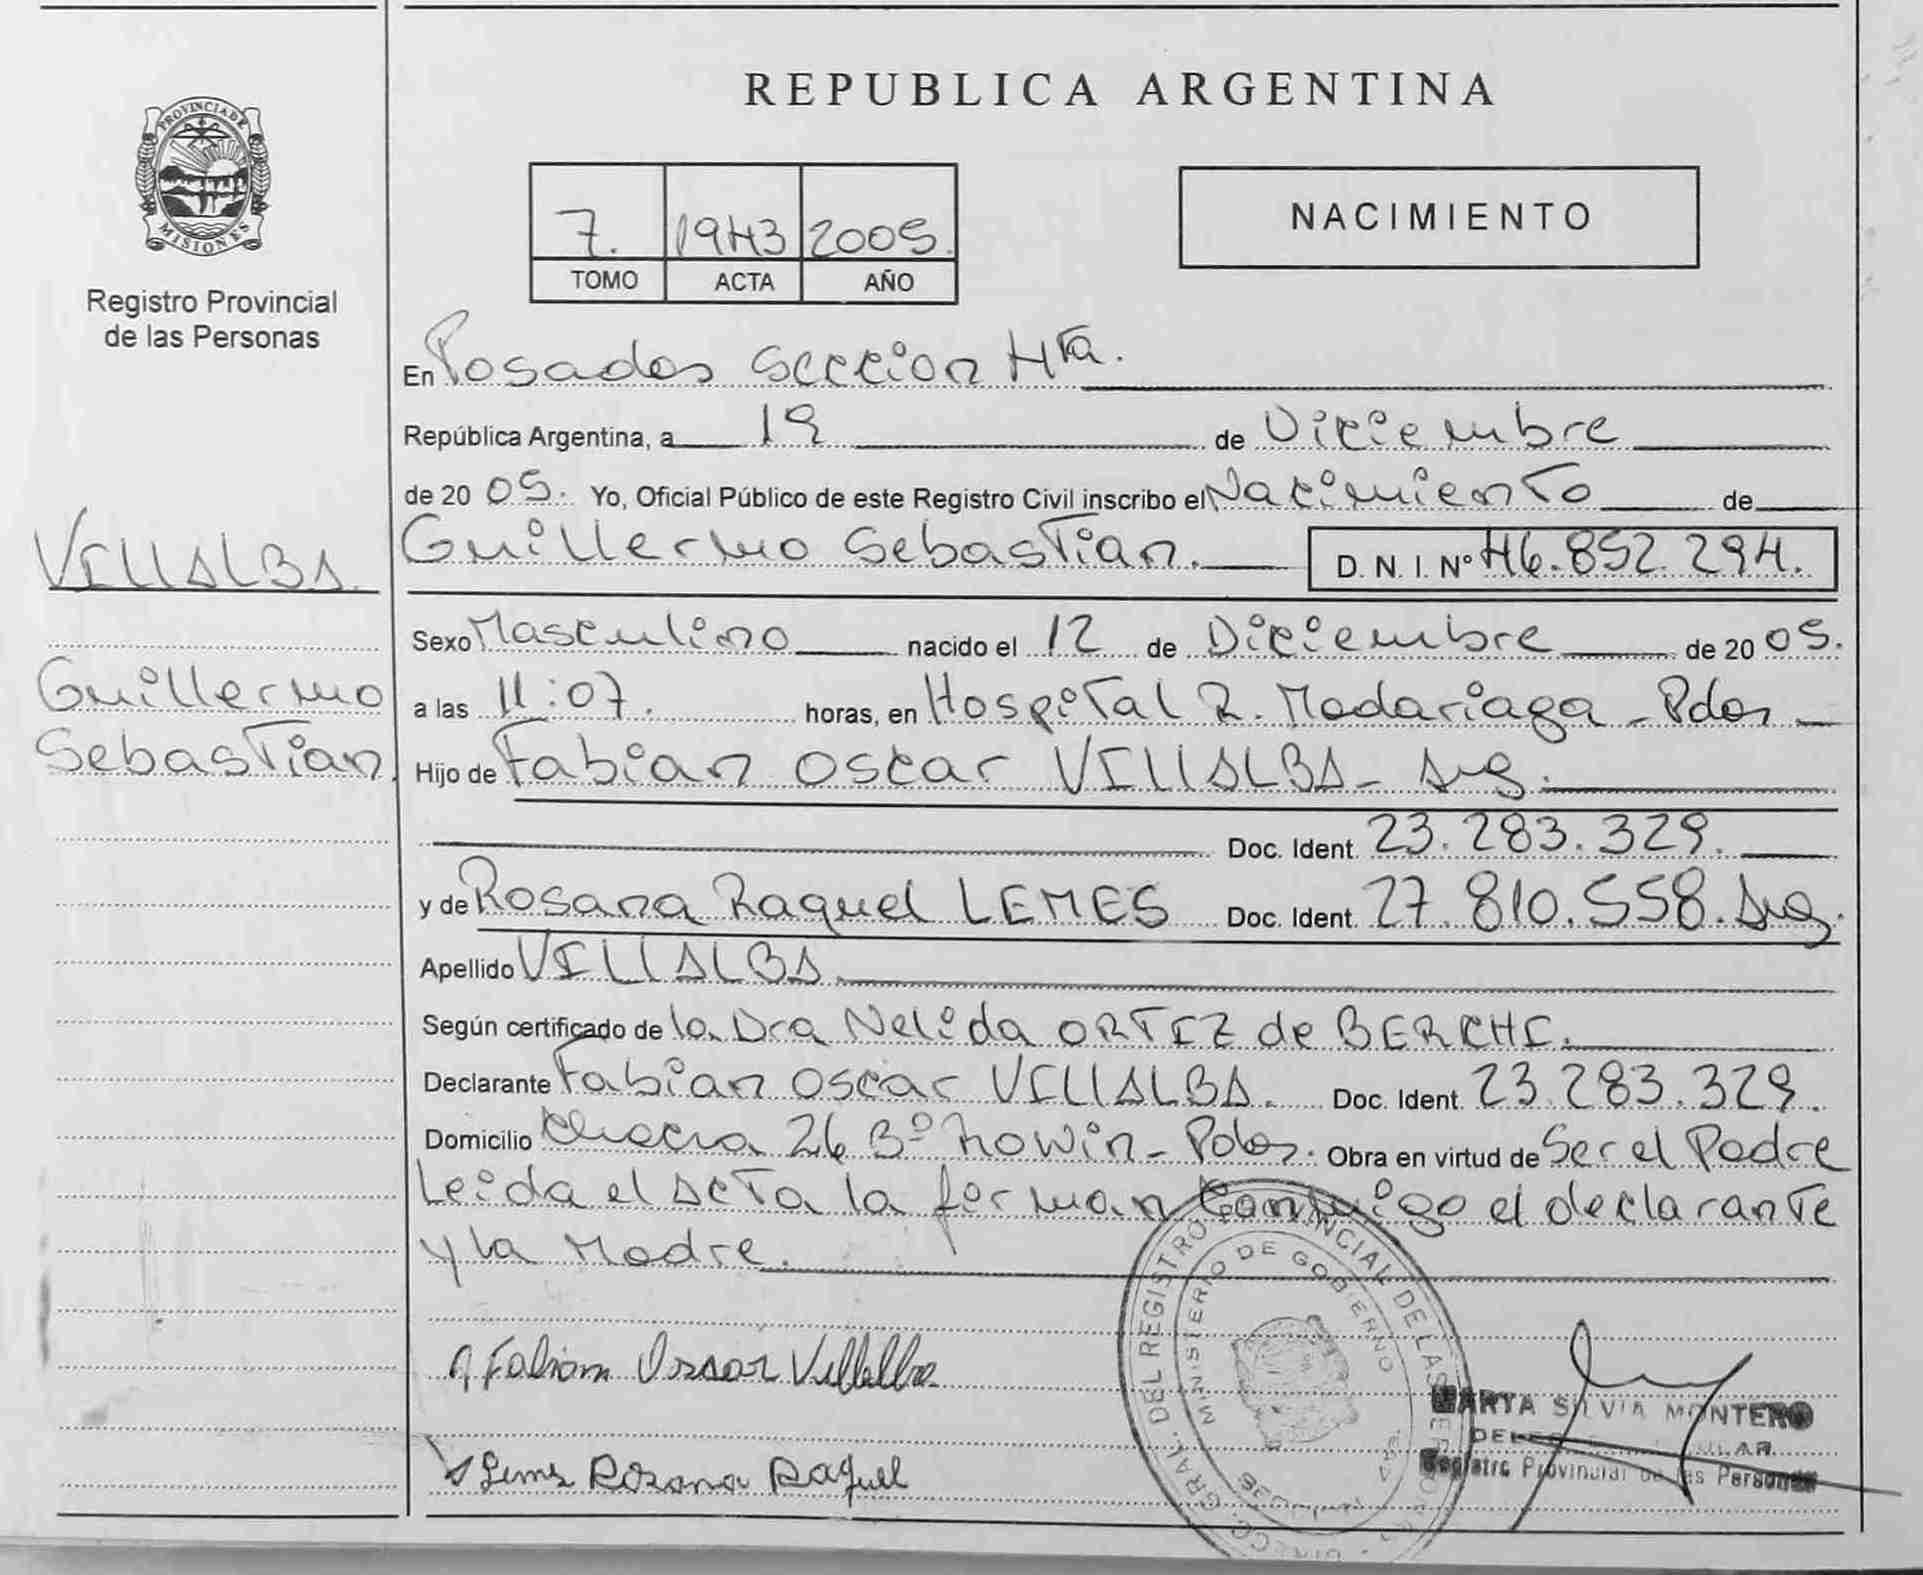 PROVINCIA DE
MISIONES
Registro Provincial
de las Personas
VILLALBA.
Guillermo
Sebastian.
REPUBLICA ARGENTINA
7. 1943 2005.
TOMO ACTA AÑO
NACIMIENTO
En Posadas Seccion 4ta.
República Argentina, a 19 de Diciembre
de 20 05. Yo, Oficial Público de este Registro Civil inscribo el Nacimiento de
Guillermo Sebastian. D. N. I. Nº 46.852.294.
Sexo Masculino nacido el 12 de Diciembre de 20 05.
a las 11:07. horas, en Hospital R. Madariaga - Pdas
Hijo de Fabian Oscar VILLALBA - Arg.
Doc. Ident. 23.283.329.
y de Rosana Raquel LEMES Doc. Ident. 27.810.558. Arg.
Apellido VILLALBA.
Según certificado de la Dra Nelida ORTIZ de BERCHI.
Declarante Fabian Oscar VILLALBA. Doc. Ident. 23.283.329.
Domicilio Chacra 26 Bº Pdas. Obra en virtud de Ser el Padre
Leida el Acta la firman Conmigo el declarante
y la Madre.
Fabian Oscar Villalba
Lemes Rosana Raquel
DIRECC. GRAL. DEL REGISTRO PROVINCIAL DE LAS PERSONAS
MINISTERIO DE GOBIERNO
MARTA SILVIA MONTERO
Registro Provincial de las Personas